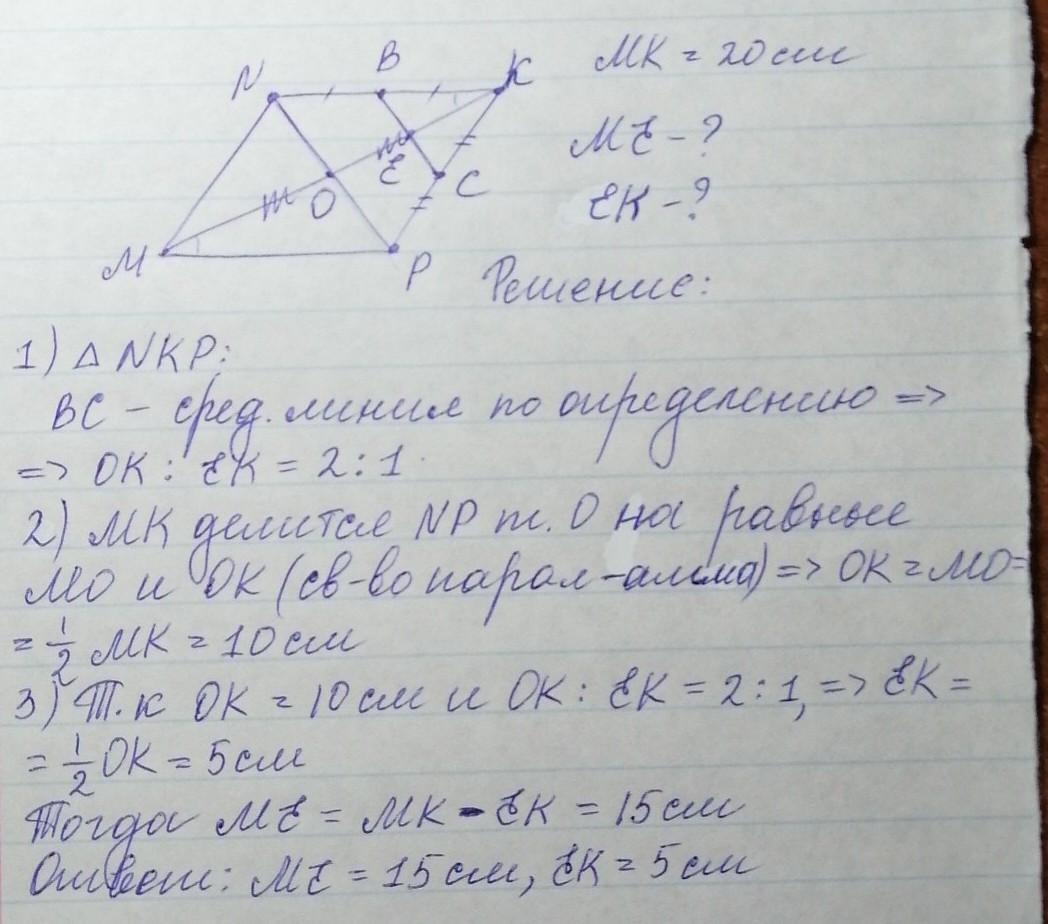 N B K MK = 20 см
ME - ?
E C
O EK - ?
M P Решение:
1) △ NKP:
BC - сред. линия по определению =>
=> OK : EK = 2 : 1
2) MK делится NP т. O на равные
MO и OK (св-во парал-амма) => OK = MO =
= 1/2 MK = 10 см
3) Т.к OK = 10 см и OK : EK = 2 : 1, => EK =
= 1/2 OK = 5 см
Тогда ME = MK - EK = 15 см
Ответ: ME = 15 см, EK = 5 см